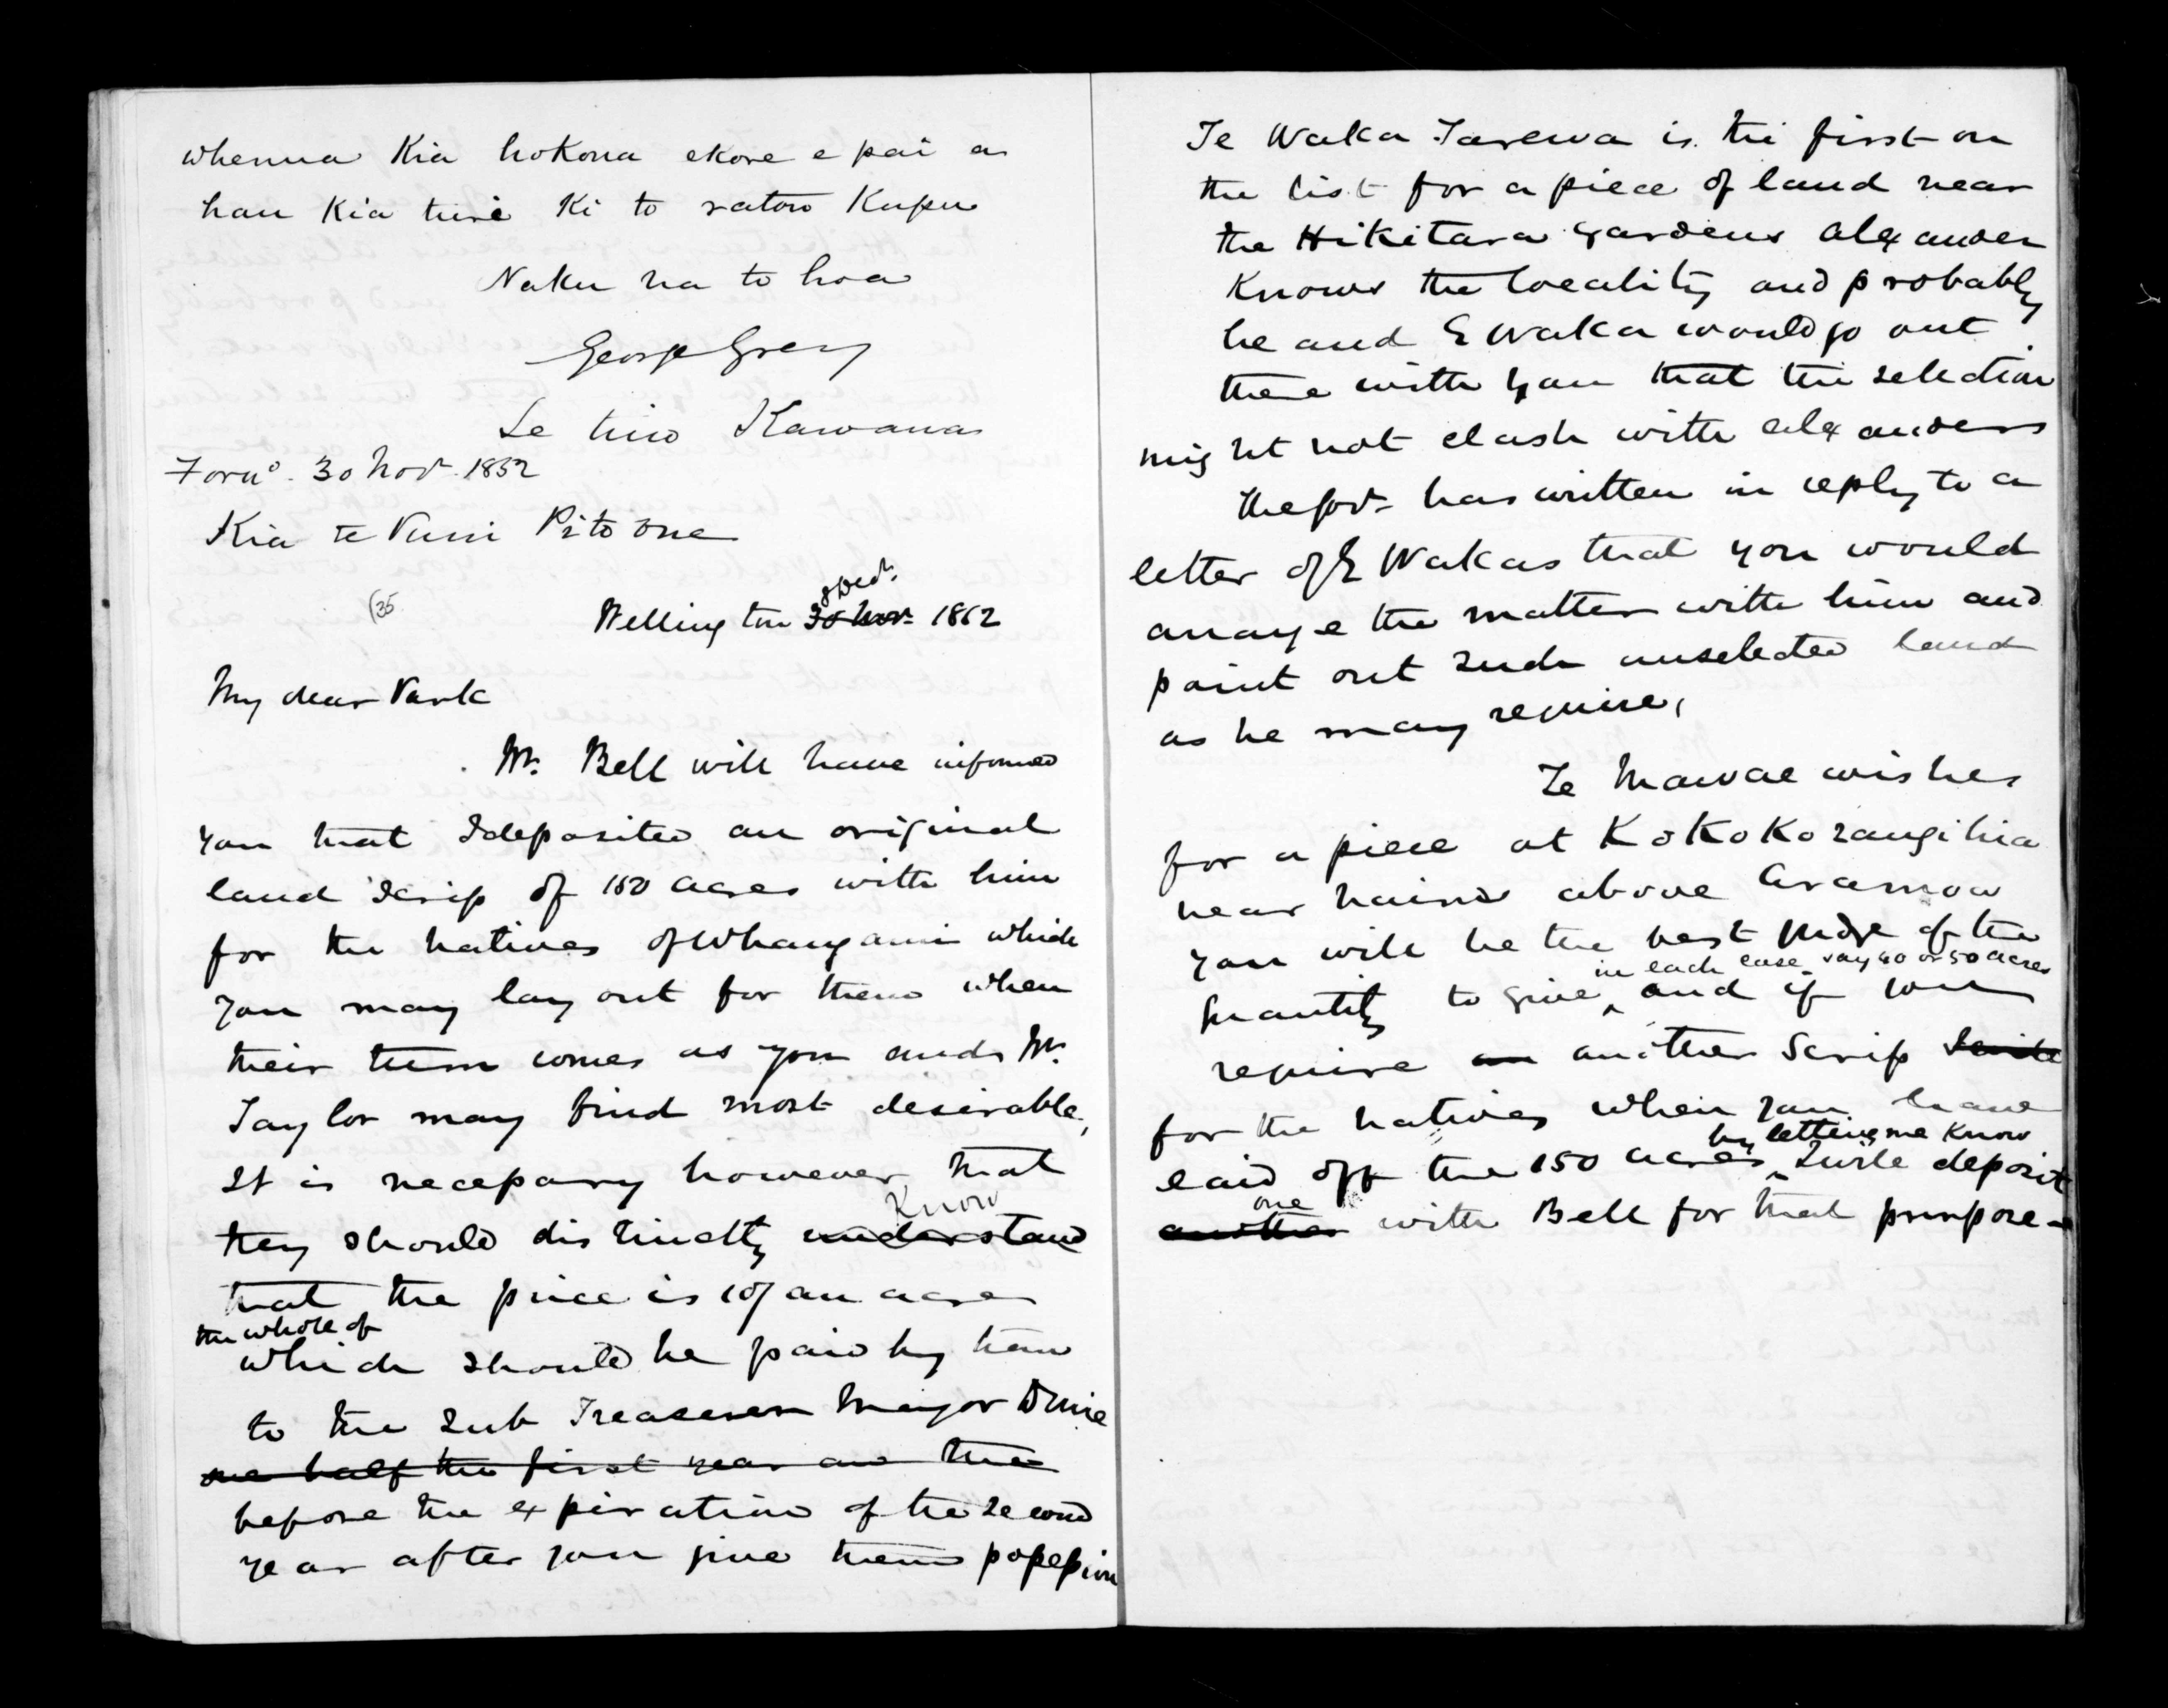 whenua Kia hokona ekore e pai a
hau Kia turi Ki to ratou Kupu
Naku na to hoa
George Grey
Te tino Kawana
Forwd. 30 Novr. 1852
Kia te Puni Pito one
(35
8 Decr.
Wellington 30 Novr. 1852
My dear Park
Mr. Bell will have informed
you that I deposited an original
land scrip of 150 acres with him
for the natives of Whanganui which
you may lay out for them when
their turn comes as you and Mr.
Taylor may find most desirable,
It is necessary however that
Know
they should distinctly understand
that the price is 10/ an acre
the whole of
which should be paid by them
to the Sub Treasurer Major Durie
one half the first year and the
before the expiration of the second
year after you give them possession
Te Waka Tarewa is the first on
the list for a piece of land near
the Hikitara gardens Alexander
Knows the locality and probably
he and E Waka would go out
there with you that the selection
might not clash with Alexanders
the Govr. has written in reply to a
letter of E Wakas that you would
arrange the matter with him and
point out such unselected land
as he may require,
Te Mawae wishes
for a piece at Kokokorangihia
near hains above Aramoa
you will be the best judge of the
in each case say 40 or 50 acres
quantity to give, and if you
require an another Scrip
for the natives when you have
by letting me Know
laid off the 150 acres, I will deposit
one
another with Bell for that purpose